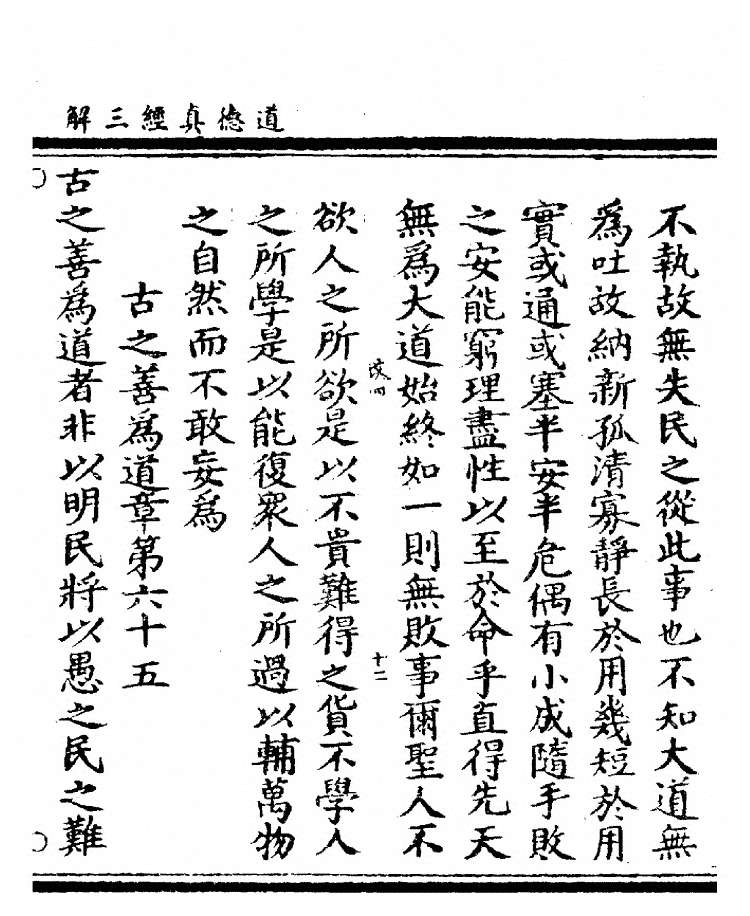 道德真經三解
不執故無失民之從此事也不知大道無
爲吐故納新孤清寡靜長於用幾短於用
實或通或塞半安半危偶有小成隨手敗
之安能窮理盡性以至於命乎直得先天
無爲大道始終如一則無敗事爾聖人不
改四
十二
欲人之所欲是以不貴難得之貨不學人
之所學是以能復衆人之所過以輔萬物
之自然而不敢妄爲
古之善爲道章第六十五
古之善爲道者非以明民將以愚之民之難